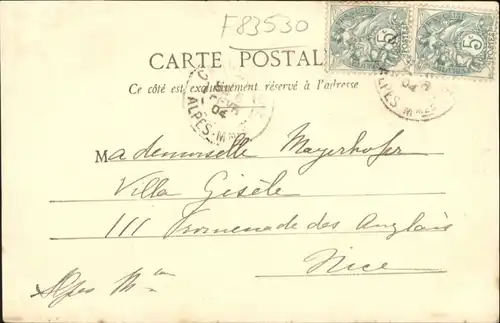 F83530
CARTE POSTALE
Ce côté est exclusivement réservé à l'adresse
04
ALPES-Mmes
Mademoiselle Mayerhofer
Villa Gisèle
111 Promenade des Anglais
Nice
Alpes Mmes